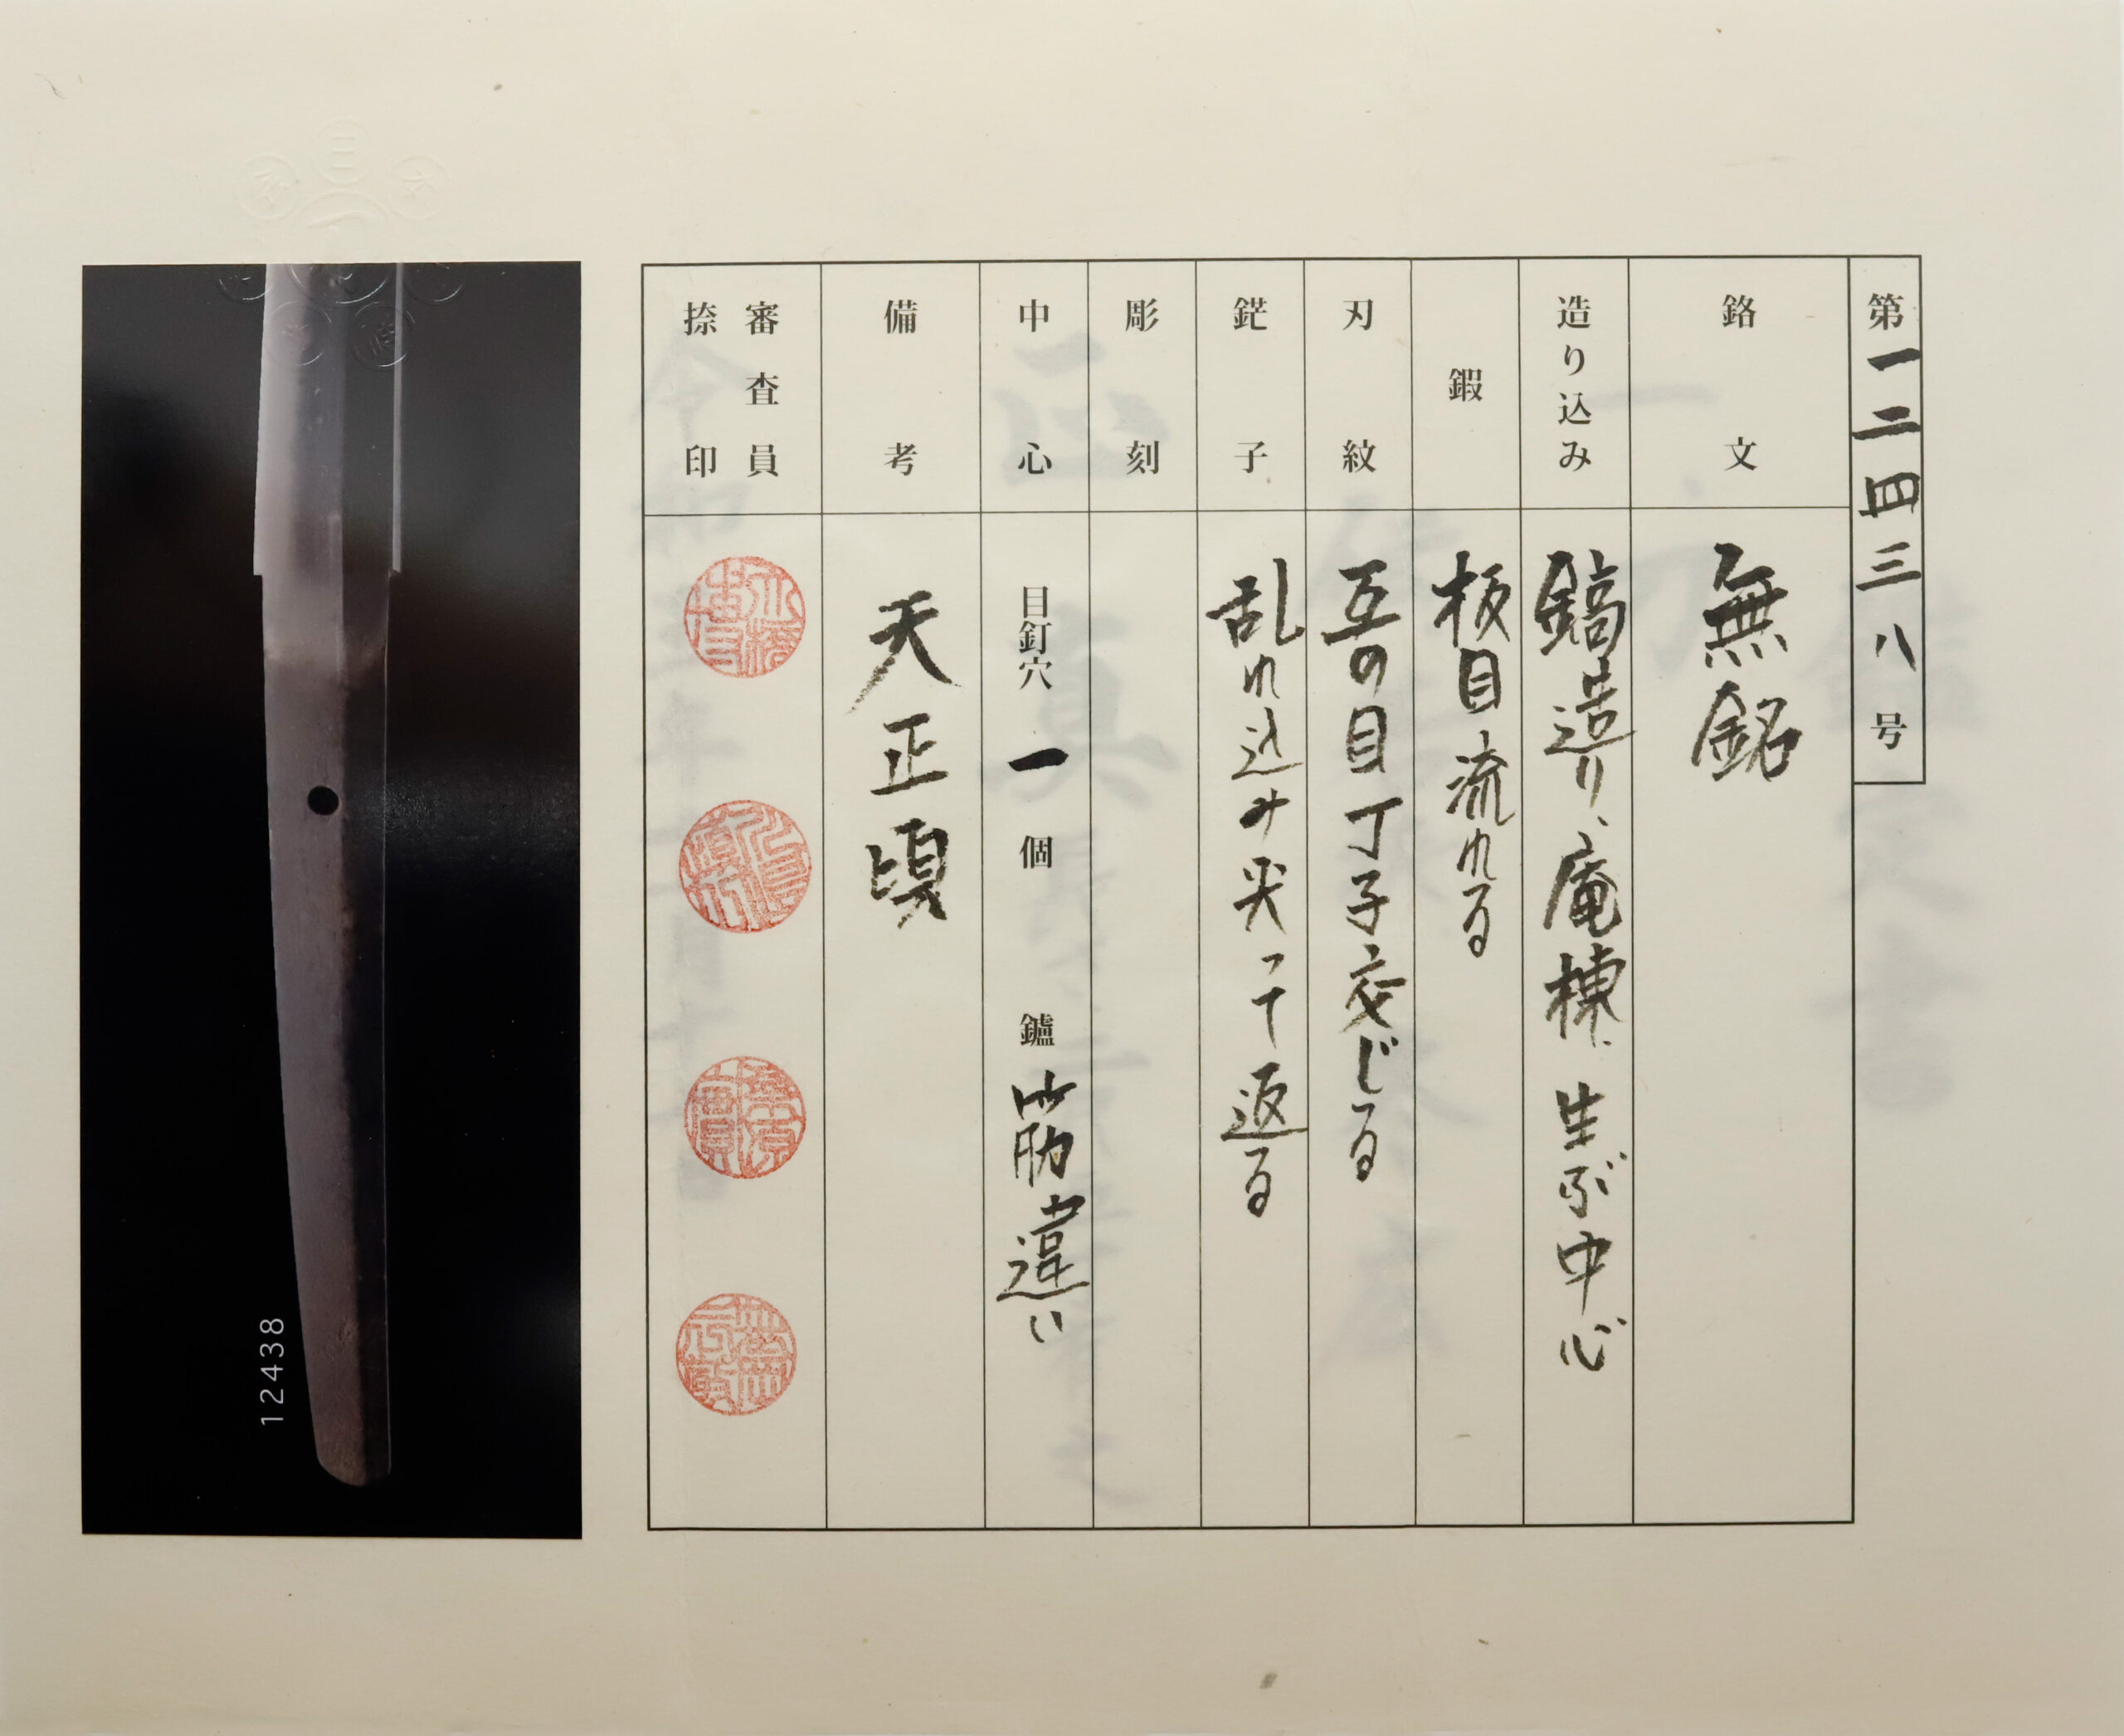 第一二四三八号
銘文 無銘
造り込み 鎬造り、庵棟、生ぶ中心
鍛 板目流れる
刃紋 互の目丁子交じる
鋩子 乱れ込み尖って返る
彫刻
中心 目釘穴 一 個 鑢 筋違い
備考 天正頃
審査員
捺印
12438